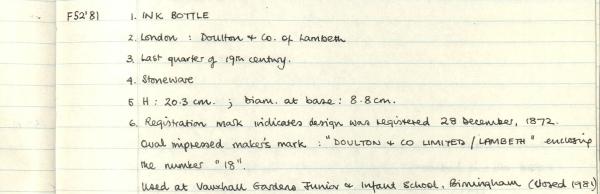 F52'81 1. INK BOTTLE
2. London : Doulton & Co. of Lambeth
3. Last quarter of 19th century.
4. Stoneware
5 H : 20.3 cm. ; Diam. at base : 8.8 cm.
6. Registration mark indicates design was registered 28 December, 1872.
Oval impressed maker's mark : "DOULTON & CO LIMITED / LAMBETH" enclosing
the number "18".
Used at Vauxhall Gardens Junior & Infant School, Birmingham (closed 1981)